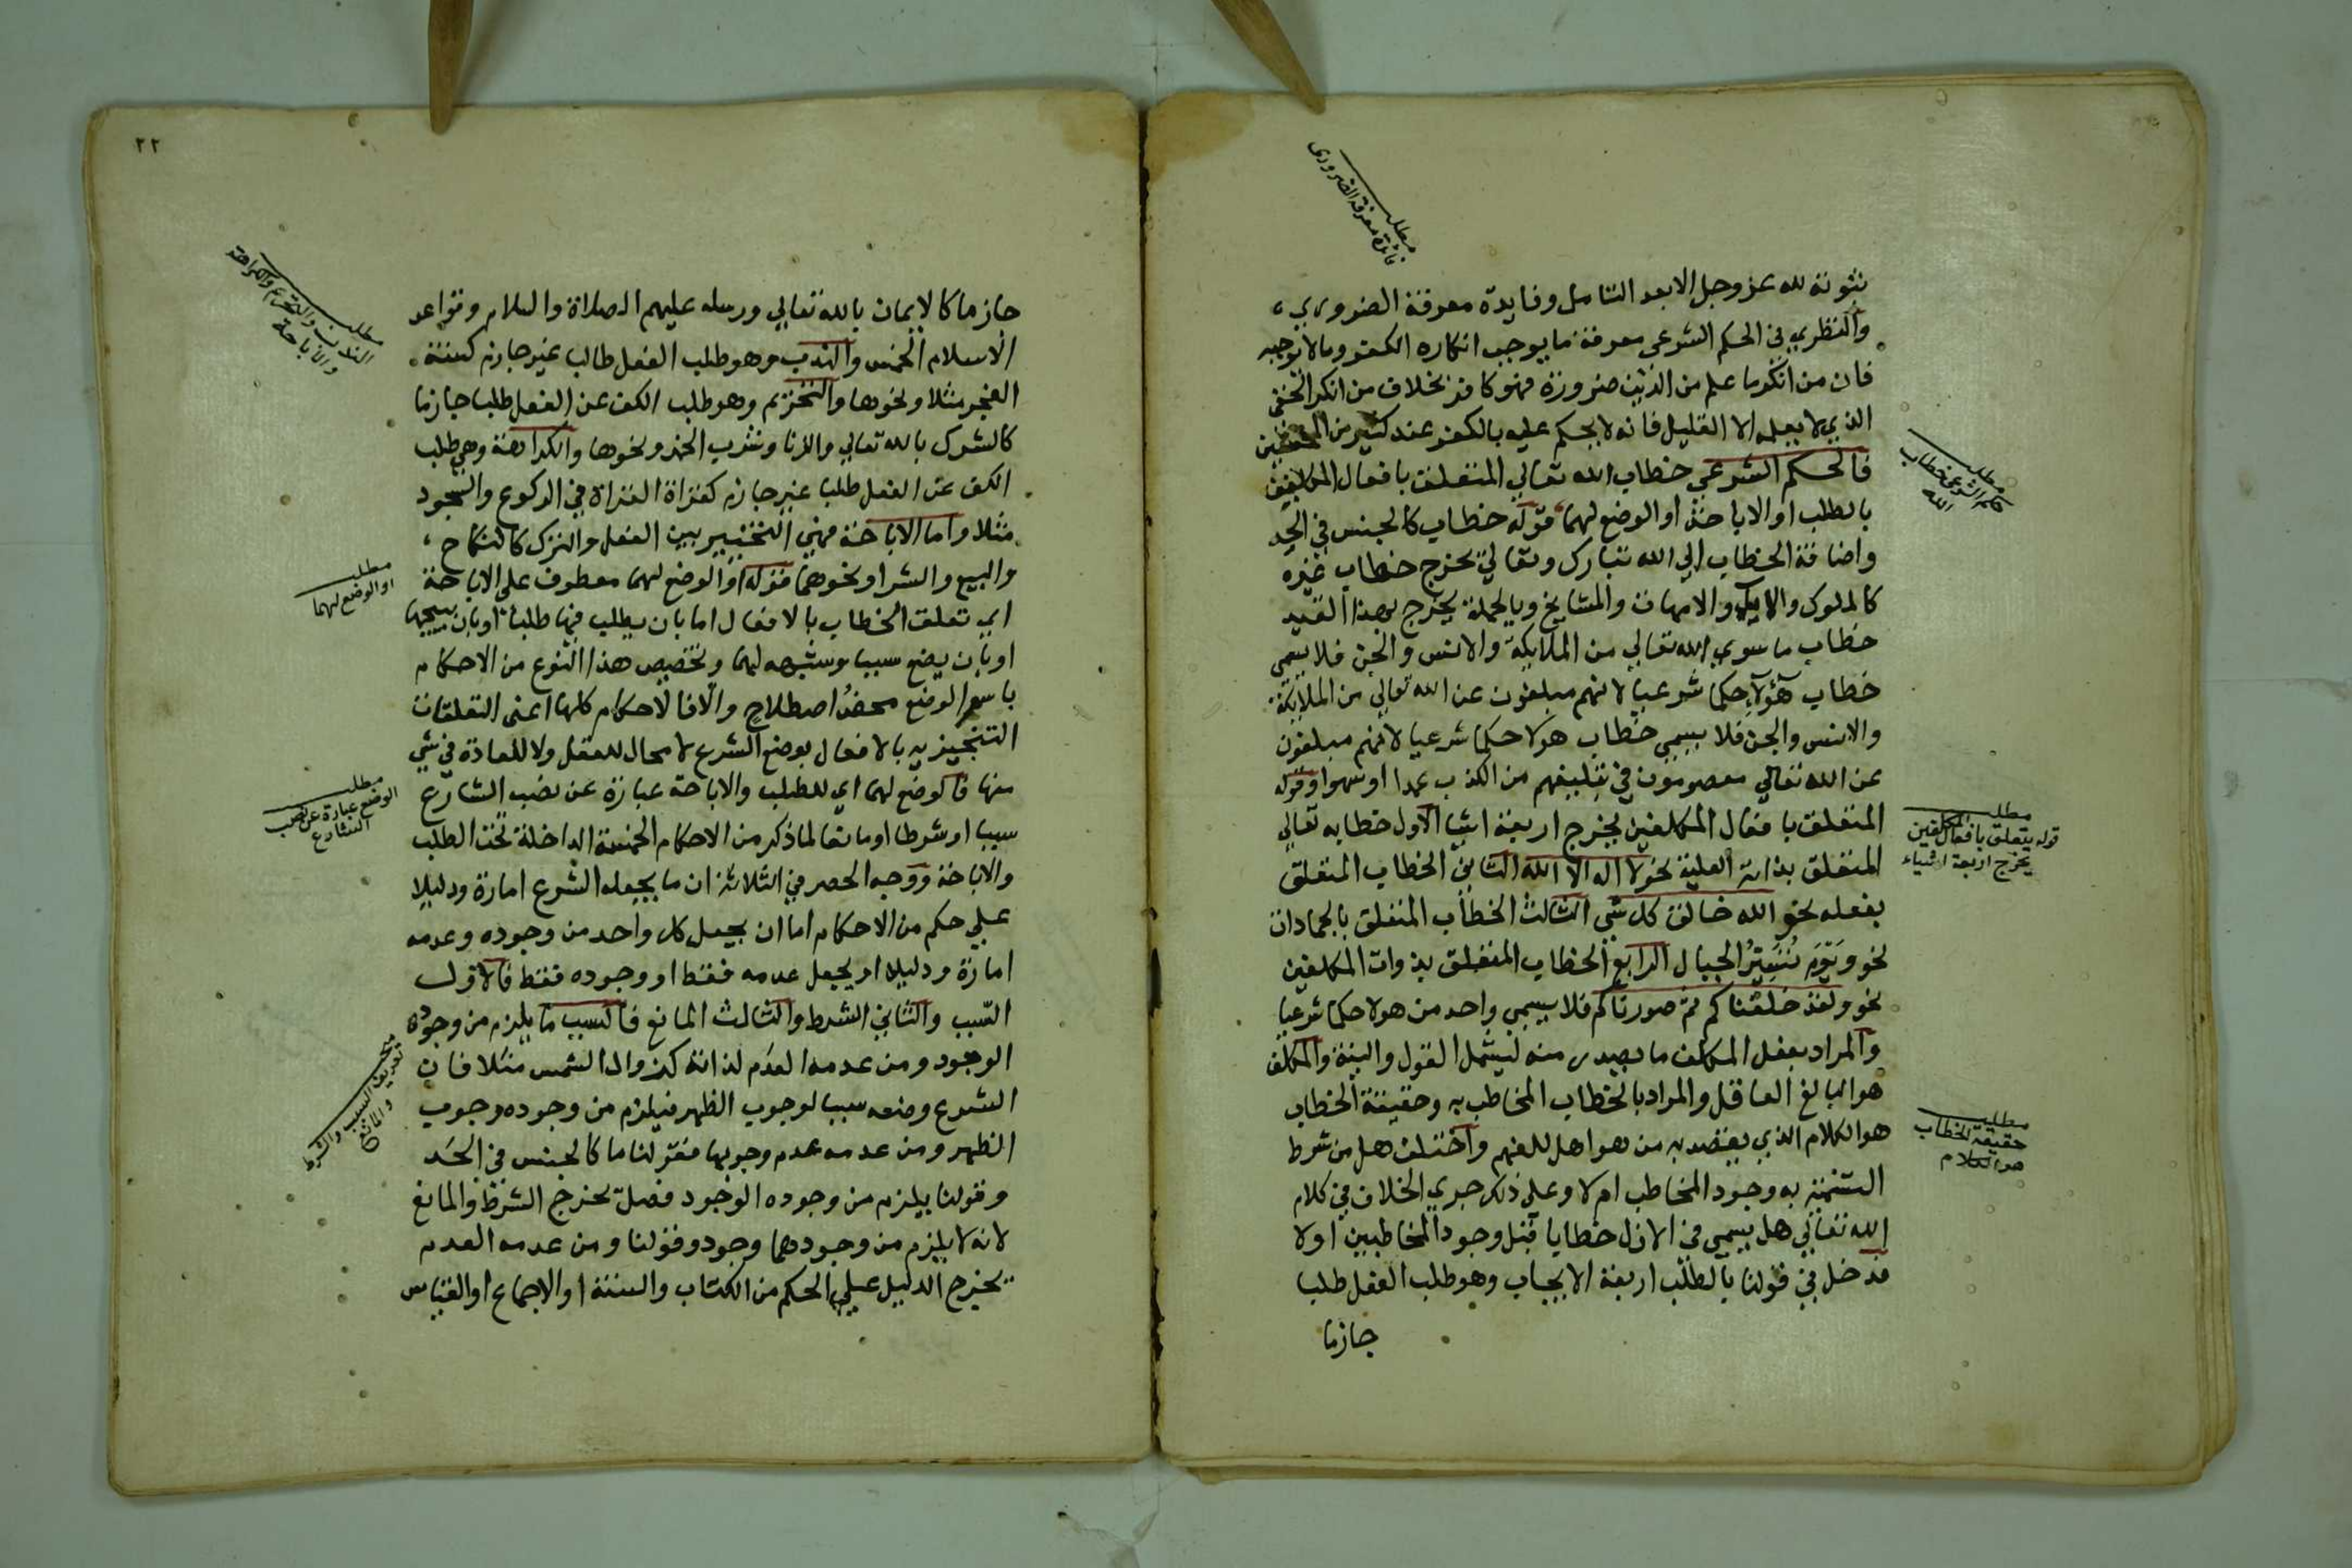 مطلب
فائدة معرفة الضرورى
ثبوته لله عز وجل الا بعد التامل وفايدة معرفة الضروري
والنظري في الحكم الشرعي معرفة ما يوجب انكاره الكفر وما لا يوجبه
فان من انكر ما علم من الدين ضرورة فهو كافر بخلاف من انكر الخفي
الذي لا يعلمه الا القليل فانه لا يحكم عليه بالكفر عند كثير من المحققين
فالحكم الشرعي خطاب الله تعالي المتعلق بافعال المكلفين
بالطلب او الاباحة او الوضع لهما قوله خطاب كالجنس في الحد
واضافة الخطاب الي الله تبارك وتعالي تخرج خطاب غيره
كالملوك والامهات والمشايخ وبالجملة يخرج بهذا القيد
خطاب ما سوي الله تعالي من الملايكة والانس والجن فلا يسمي
خطاب هؤلاء حكما شرعيا لانهم مبلغون عن الله تعالي من الملايكة
والانس والجن فلا يسمي خطاب هولا حكما شرعيا لانهم مبلغون
عن الله تعالي معصومون في تبليغهم من الكذب عمدا او سهوا وقوله
المتعلق بافعال المكلفين يخرج اربعة اشيا الاول خطابه تعالي
المتعلق بذاته العلية نحو لا اله الا الله الثاني الخطاب المتعلق
بفعله نحو الله خالق كل شي الثالث الخطاب المتعلق بالجمادات
نحو ويَوْمَ نُسَيِّرُ الجبال الرابع الخطاب المتعلق بذوات المكلفين
نحو ولقد خلقناكم ثم صورناكم فلا يسمي واحد من هولا حكما شرعيا
والمراد بفعل المكلف ما يصدر منه ليشمل القول والنية والمكلف
هو البالغ العاقل والمراد بالخطاب المخاطب به وحقيقة الخطاب
هو الكلام الذي يقصد به من هو اهل للفهم واختلف هل من شرط
التسمية به وجود المخاطب ام لا وعلي ذلك جري الخلاف في كلام
الله تعالي هل يسمي في الازل خطابا قبل وجود المخاطبين او لا
فدخل في قولنا بالطلب اربعة الايجاب وهو طلب الفعل طلبا
جازما
مطلب
حكم الشرعي خطاب
الله
مطلب
قوله يتعلق بافعال المكلفين
يخرج اربعة اشياء
مطلب
حقيقة الخطاب
هو الكلام
٢٢
جازما كالايمان بالله تعالي ورسله عليهم الصلاة والسلام وقواعد
الاسلام الخمس والندب وهو طلب الفعل طالب غير جازم كسنة
الفجر مثلا ونحوها والتحريم وهو طلب الكف عن الفعل طلبا جازما
كالشرك بالله تعالي والزنا وشرب الخمر ونحوها والكراهة وهي طلب
الكف عن الفعل طلبا غير جازم كقراة القراة في الركوع والسجود
مثلا واما الاباحة فهي التخيير بين الفعل والترك كالنكاح
والبيع والشرا ونحوهما قوله او الوضع لهما معطوف علي الاباحة
اي تعلق الخطاب بالافعال اما بان يطلب فيها طلبا او بان يبيحها
او بان يضع سببا وشبهه لهما وتخصيص هذا النوع من الاحكام
باسم الوضع محضُ اصطلاحٍ والّا فالاحكام كلها اعني التعلقات
التنجيزيه بالافعال بوضع الشرع لا مجال للعقل ولا للعادة في شي
منها فالوضع لهما اي للطلب والاباحة عبارة عن نصب الشارع
سببا او شرطا او مانعا لما ذكر من الاحكام الخمسة الداخلة تحت الطلب
والاباحة ووجه الحصر في الثلاثة ان ما يجعله الشرع امارة ودليلا
علي حكم من الاحكام اما ان يجعل كل واحد من وجوده وعدمه
امارة ودليلا او يجعل عدمه فقط او وجوده فقط فالاول
السّبب والثاني الشرط والثالث المانع فالسبب ما يلزم من وجوده
الوجود ومن عدمه العدم لذاته كزوال الشمس مثلا فان
الشرع وضعه سببا لوجوب الظهر فيلزم من وجوده وجوب
الظهر ومن عدمه عدم وجوبها فقولنا ما كالجنس في الحَد
وقولنا يلزم من وجوده الوجود فصل تخرج الشرط والمانع
لانه لا يلزم من وجودهما وجود وقولنا ومن عدمه العدم
يخرج الدليل علي الحكم من الكتاب والسنة او الاجماع او القياس
مطلب
الندب والتحريم والكراهة
والاباحة
مطلب
او الوضع لهما
مطلب
الوضع عبارة عن نصب
الشارع
تعريف السبب والشرط
والمانع